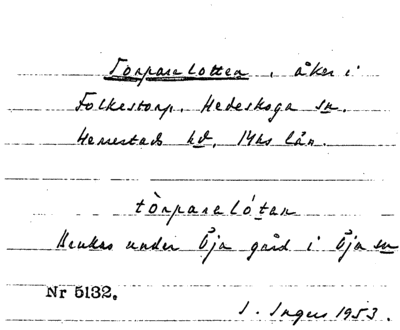 Torparelotten, åker i
Folkestorp, Hedeskoga sn.
Herrestads hd, Mhs län.
tòrpareló́tan
Brukas under Öja gård i Öja sn
Nr 5132.
I. Ingers 1953.